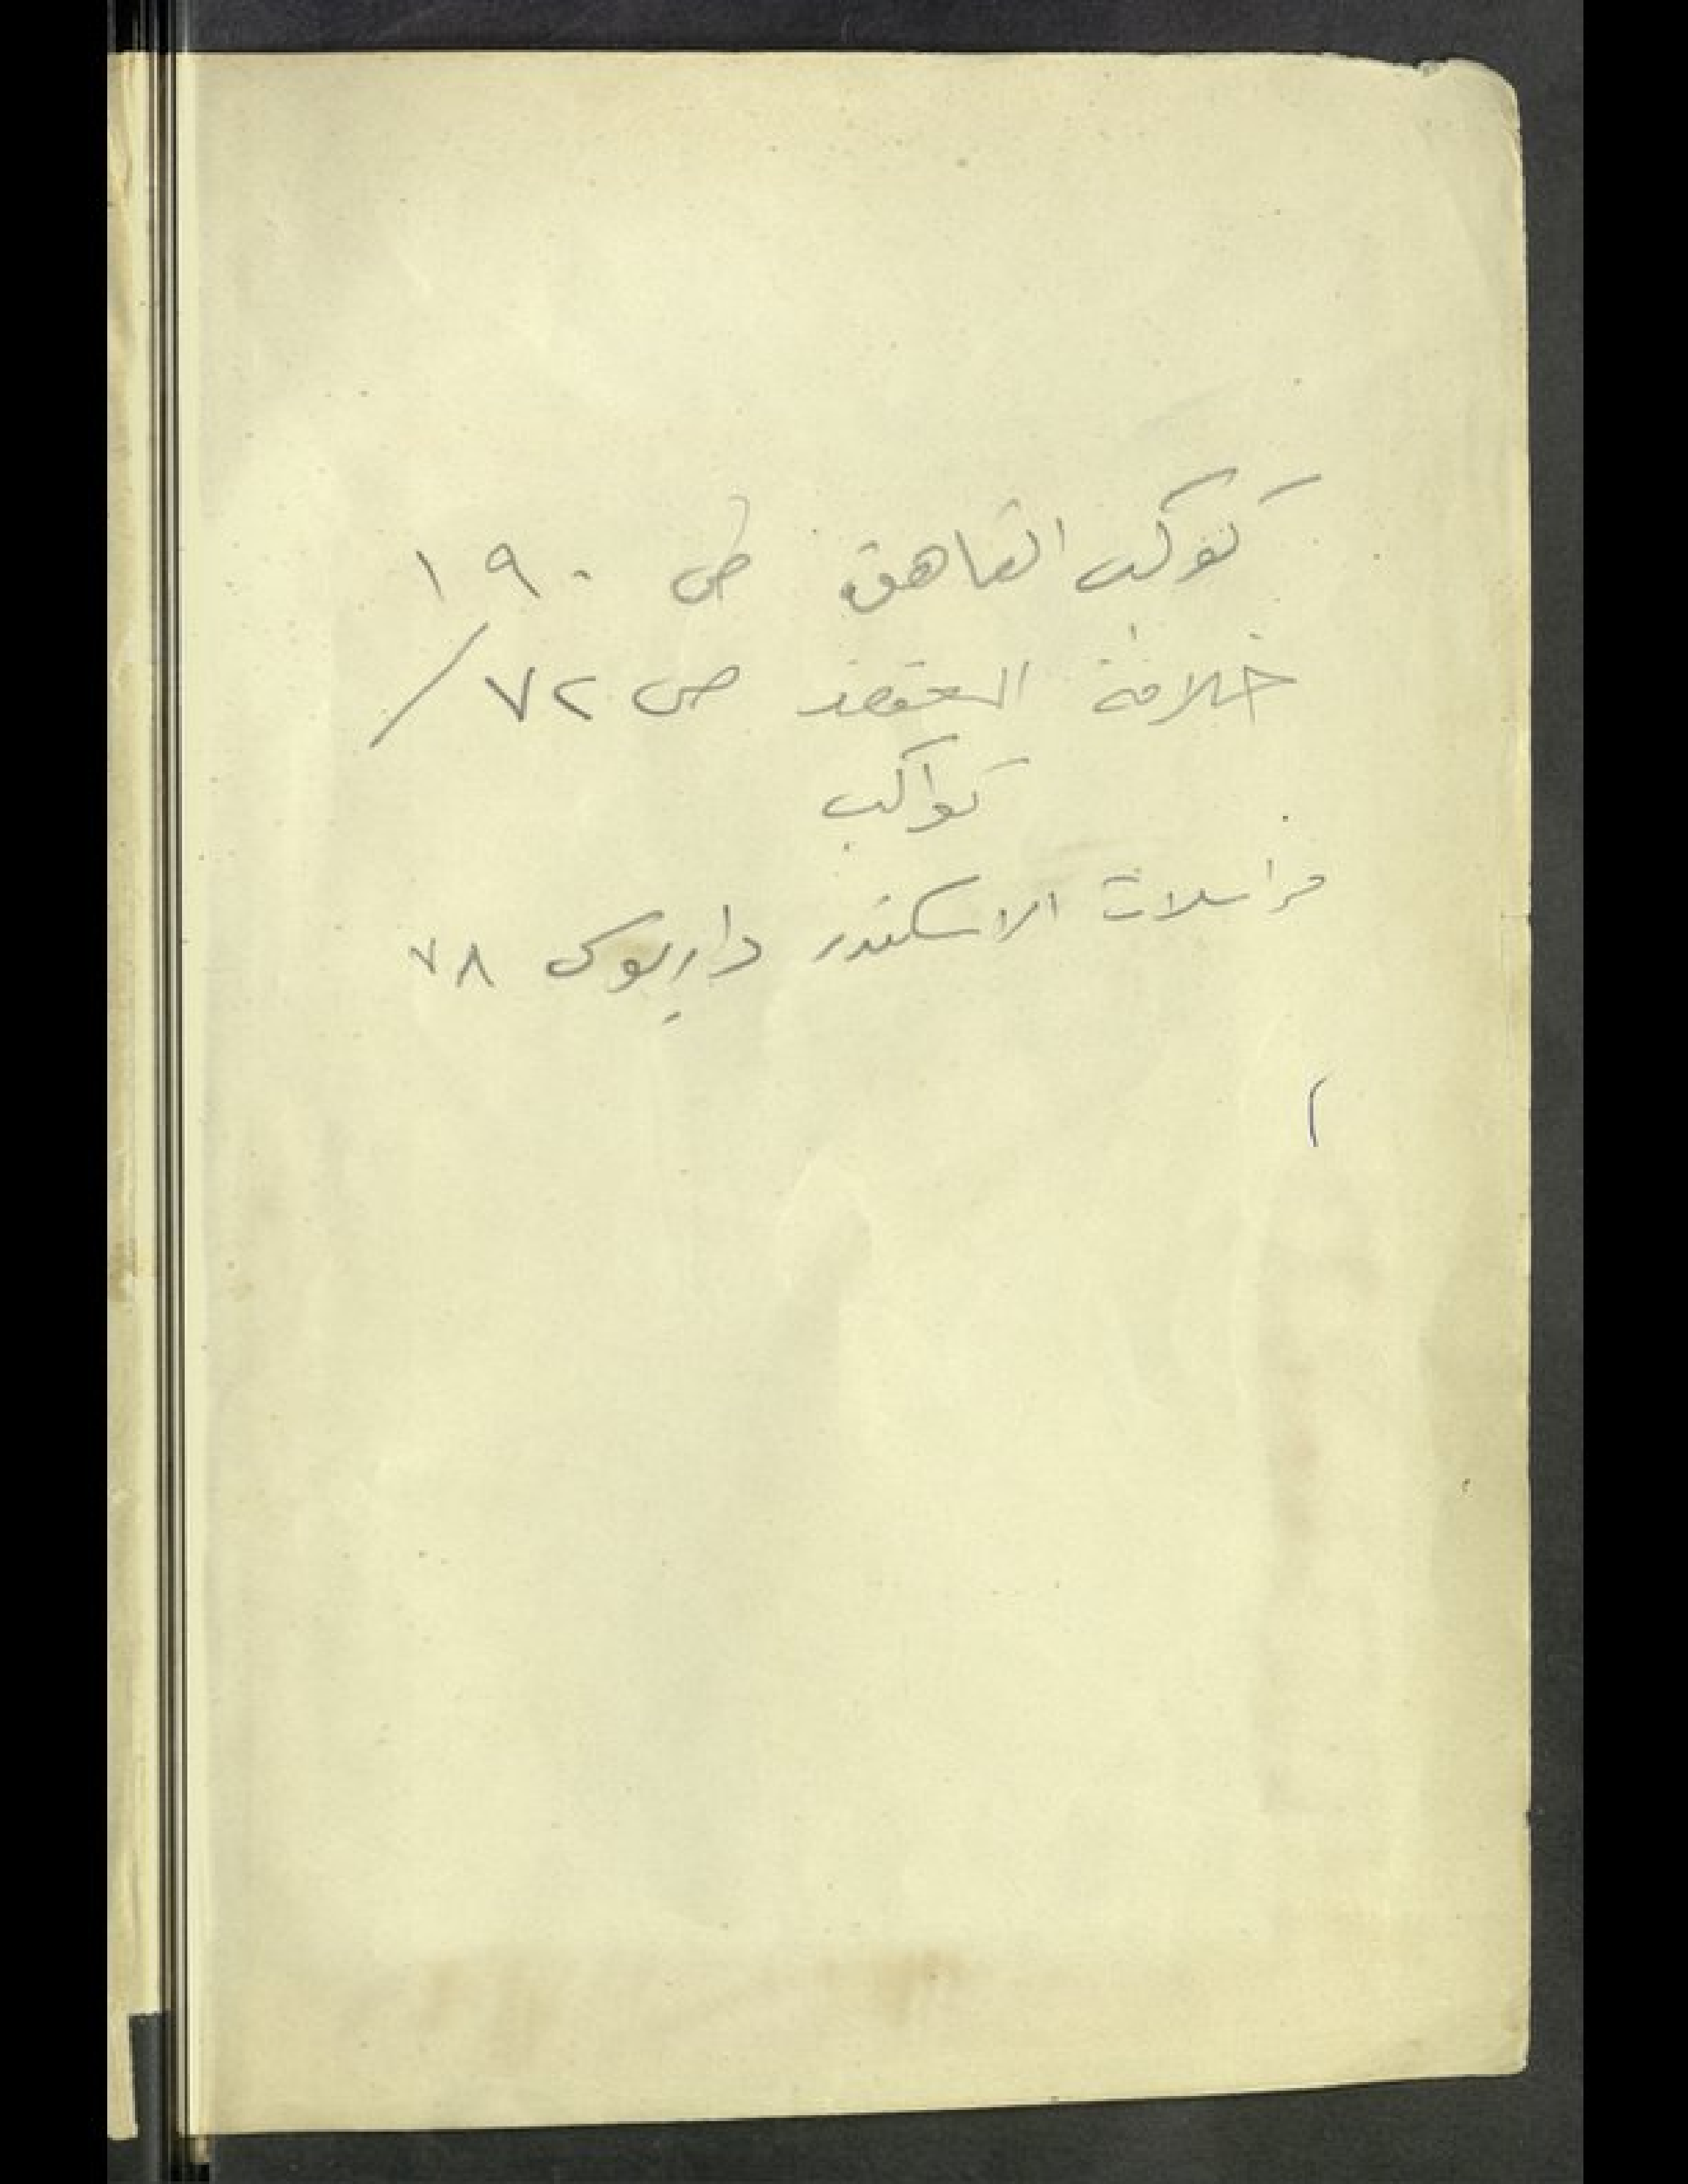 كوكب القاهرة ص ١٩٠
خلافة المعتضد ص ٧٢/
كواكب
مراسلات الاسكندر داريوس ٧٨